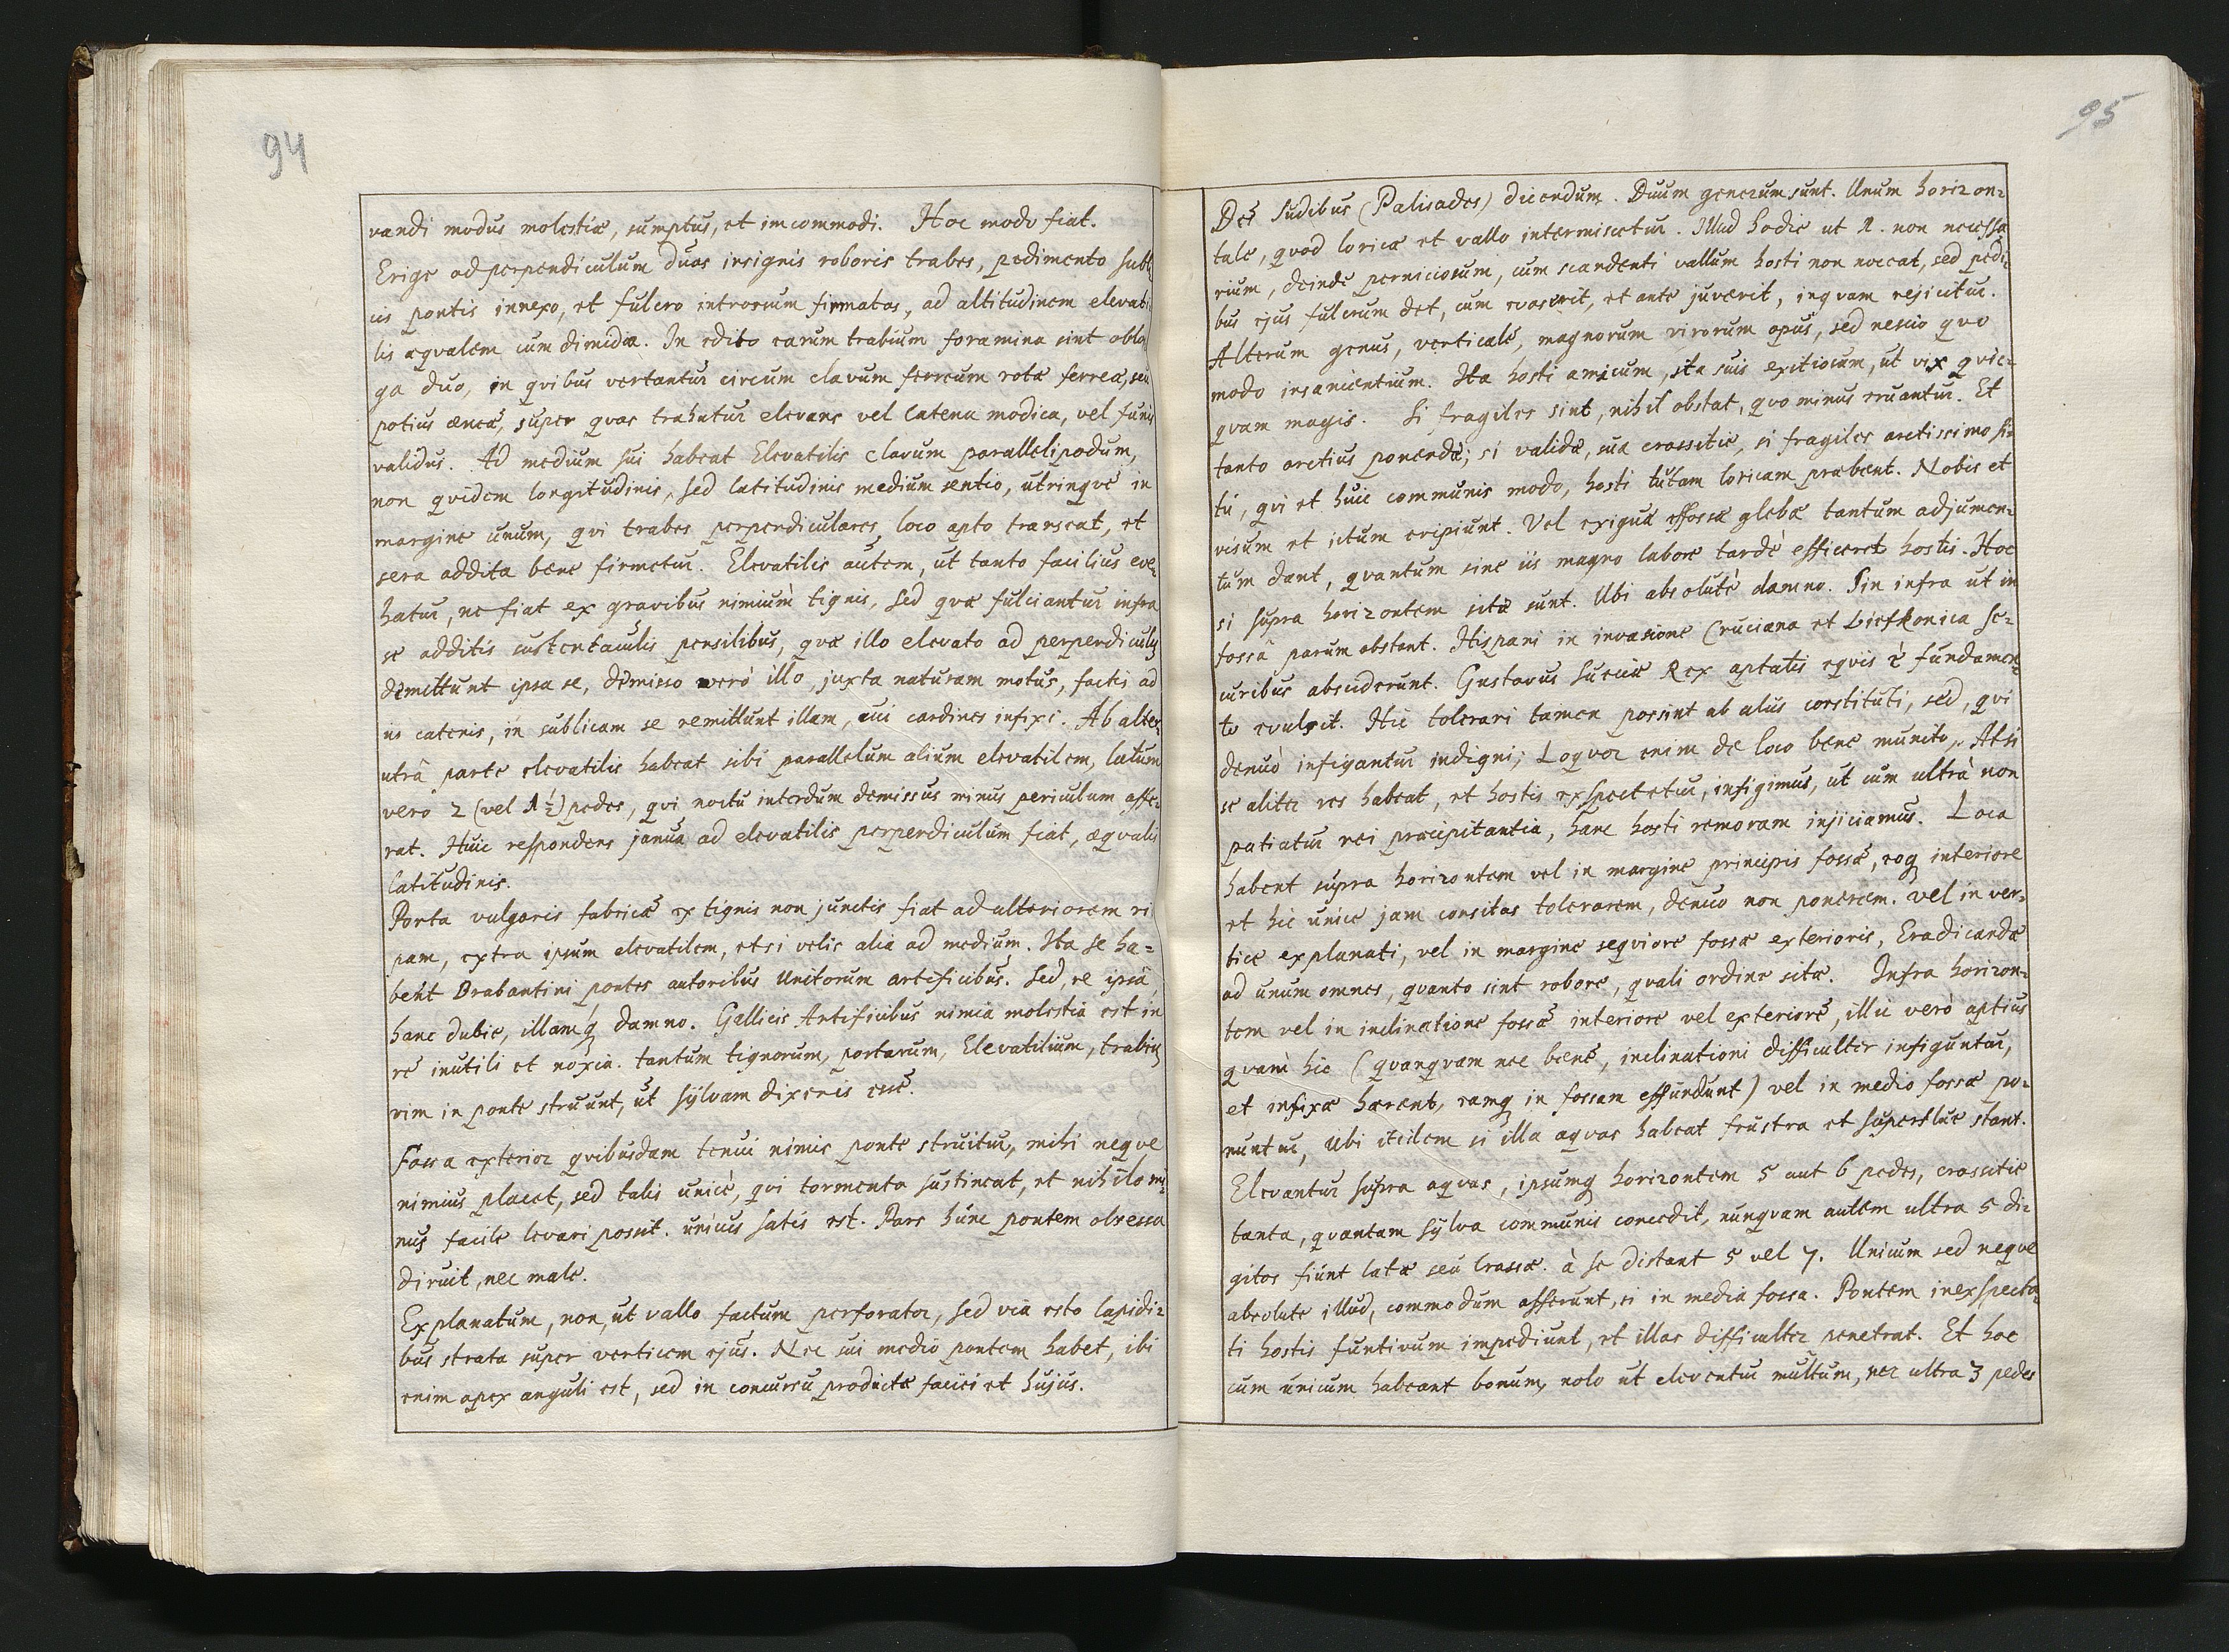 94
vandi modus molestiæ, sumptus, et imcommodi. Hoc modo fiat.
Erige ad perpendiculum duas insignis roboris trabes, pedimento subli
cis pontis innexo, et fulcro introrsum firmatas, ad altitudinem elevati
lis æqvalem cum dimidia. In edito earum trabium foramina sint oblo
ga duo, in qvibus vertantur circum clavum ferreum rotæ ferreæ, seu
potius æneæ, super qvas trahatur elevans vel catena modica, vel funis
validus. Ad medium sui habeat Elevatilis clavum parallelipodum,
non qvidem longitudinis, sed latitudinis medium sentio, utrinqve in
margine unum, qvi trabes perpendiculares loco apto transeat, et
sera addita bene firmetur. Elevatilis autem, ut tanto facilius eve,
hatur, ne fiat ex gravibus nimium tignis, sed qvæ fulciantur infra
se additis sustentaculis pensilibus, qvæ illo elevato ad perpendiculu
demittunt ipsa se, demisso verò illo, juxta naturam motus, factis ad
id catenis, in sublicam se remittunt illam, cui cardines infixi. Ab alter,
utrà parte elevatilis habeat sibi parallelum alium elevatilem, latum
vero 2 (vel 1½) pedes, qvi noctu interdum demissus minus periculum affe,
rat. Huic respondens janua ad elevatilis perpendiculum fiat, æqvalis
latitudinis.
Porta vulgaris fabricæ ex tignis non junctis fiat ad ulteriorem ri
pam, extra ipsum elevatilem, et si velis alia ad medium. Ita se ha=
bent Brabantini pontes autoribus Unitorum artificibus. Sed, re ipsâ,
hanc dubie, illamq damno. Gallicis Artificibus nimia molestia est in
re inutili et noxia. tantum tignorum, portarum, Elevatilium, trabiu
vim in ponte struunt, ut sylvam dixeris esse.
Fossa exterior qvibusdam tenui nimis ponte struitur, mihi neqve
nimius placet, sed talis unicè, qvi tormenta sustineat, et nihilomi,
nus facile levari possit. unicus satis est. Pars hunc pontem obsessa
diruit, nec male.
Explanatum, non, ut vallo factum perforator, sed via esto lapidi=
bus strata super verticem ejus. Nec sui medio pontem habet, ibi
enim apex anguli est, sed in concursu productæ faciei et hujus.
95
De Sudibus (Palisades) dicendum. Duum generum sunt. Unum horizon=
tale, qvod loricæ et vallo intermiscetur. Illud hodie ut 1. non necessa
rium, deinde perniciosum, cum scandenti vallum hosti non noceat, sed pedi=
bus ejus fulcrum det, cum evaserit, et ante juverit, inqvam rejicitur.
Alterum genus, verticale, magnorum virorum opus, sed nescio qvo
modo insanientium. Ita hosti amicum, ita suis exitiosum, ut vix qvic=
qvam magis. Si fragiles sint, nihil obstat, qvo minus eruantur. Et
tanto arctius ponendæ; si validæ, sua crassitie, si fragiles arctissimo si=
tu, qvi et huic communis modo, hosti tutam loricam præbent. Nobis et
visum et ictum eripiunt. Vel exiguæ effossæ glebæ tantum adjumen=
tum dant, qvantum sine iis magno labore tardè efficeret hostis. Hoc
si supra horizontem sitæ sunt. Ubi absolutè damno. Sin infra ut in
fossa parum obstant. Hispani in invasione Cruciana et Liefkonica se=
curibus absciderunt. Gustavus Sueciæ Rex aptatis eqvis è fundamen=
to evulsit. Hic tolerari tamen possint ab aliis constituti, sed, qvi
denuò infigantur indigni; Loqvor enim de loco bene munito. At si
se aliter res habeat, et hostis exspectetur, infigimus, ut cum ultrà non
patiatur rei præcipitantia, hanc hosti remoram injiciamus. Loca
habent supra horizontem vel in margine principis fossæ, eoq interiore
et hic unice jam consitas tolerarem, denuo non ponerem. vel in ver=
tice explanati, vel in margine seqviore fossæ exterioris, Eradicandæ
ad unum omnes, qvanto sint robore, qvali ordine sitæ. Infra horizon=
tem vel in inclinatione fossæ interiore vel exteriore, illic verò aptius
qvàm hic (qvanqvam nec bene, inclinationi difficulter infiguntur,
et infixæ hærent, eamq in fossam effundunt) vel in medio fossæ po=
nuntur, Ubi itidem si illa aqvas habeat frustra et superfluæ stant.
Elevantur supra aqvas, ipsumq horizontem 5 aut 6 pedes, crassitie
tanta, qvantam sylva communis concedit, nunqvam autem ultra 5 di=
gitos fiunt latæ seu crassæ. à se distant 5 vel 7. Unicum sed neqve
absolute illud, commodum afferunt, si in media fossa. Pontem inexspecta,
ti hostis furtivum impediunt, et illas difficulter penetrat. Et hoc
cum unicum habeant bonum, nolo ut eleventur multum, nec ultra 3 pedes